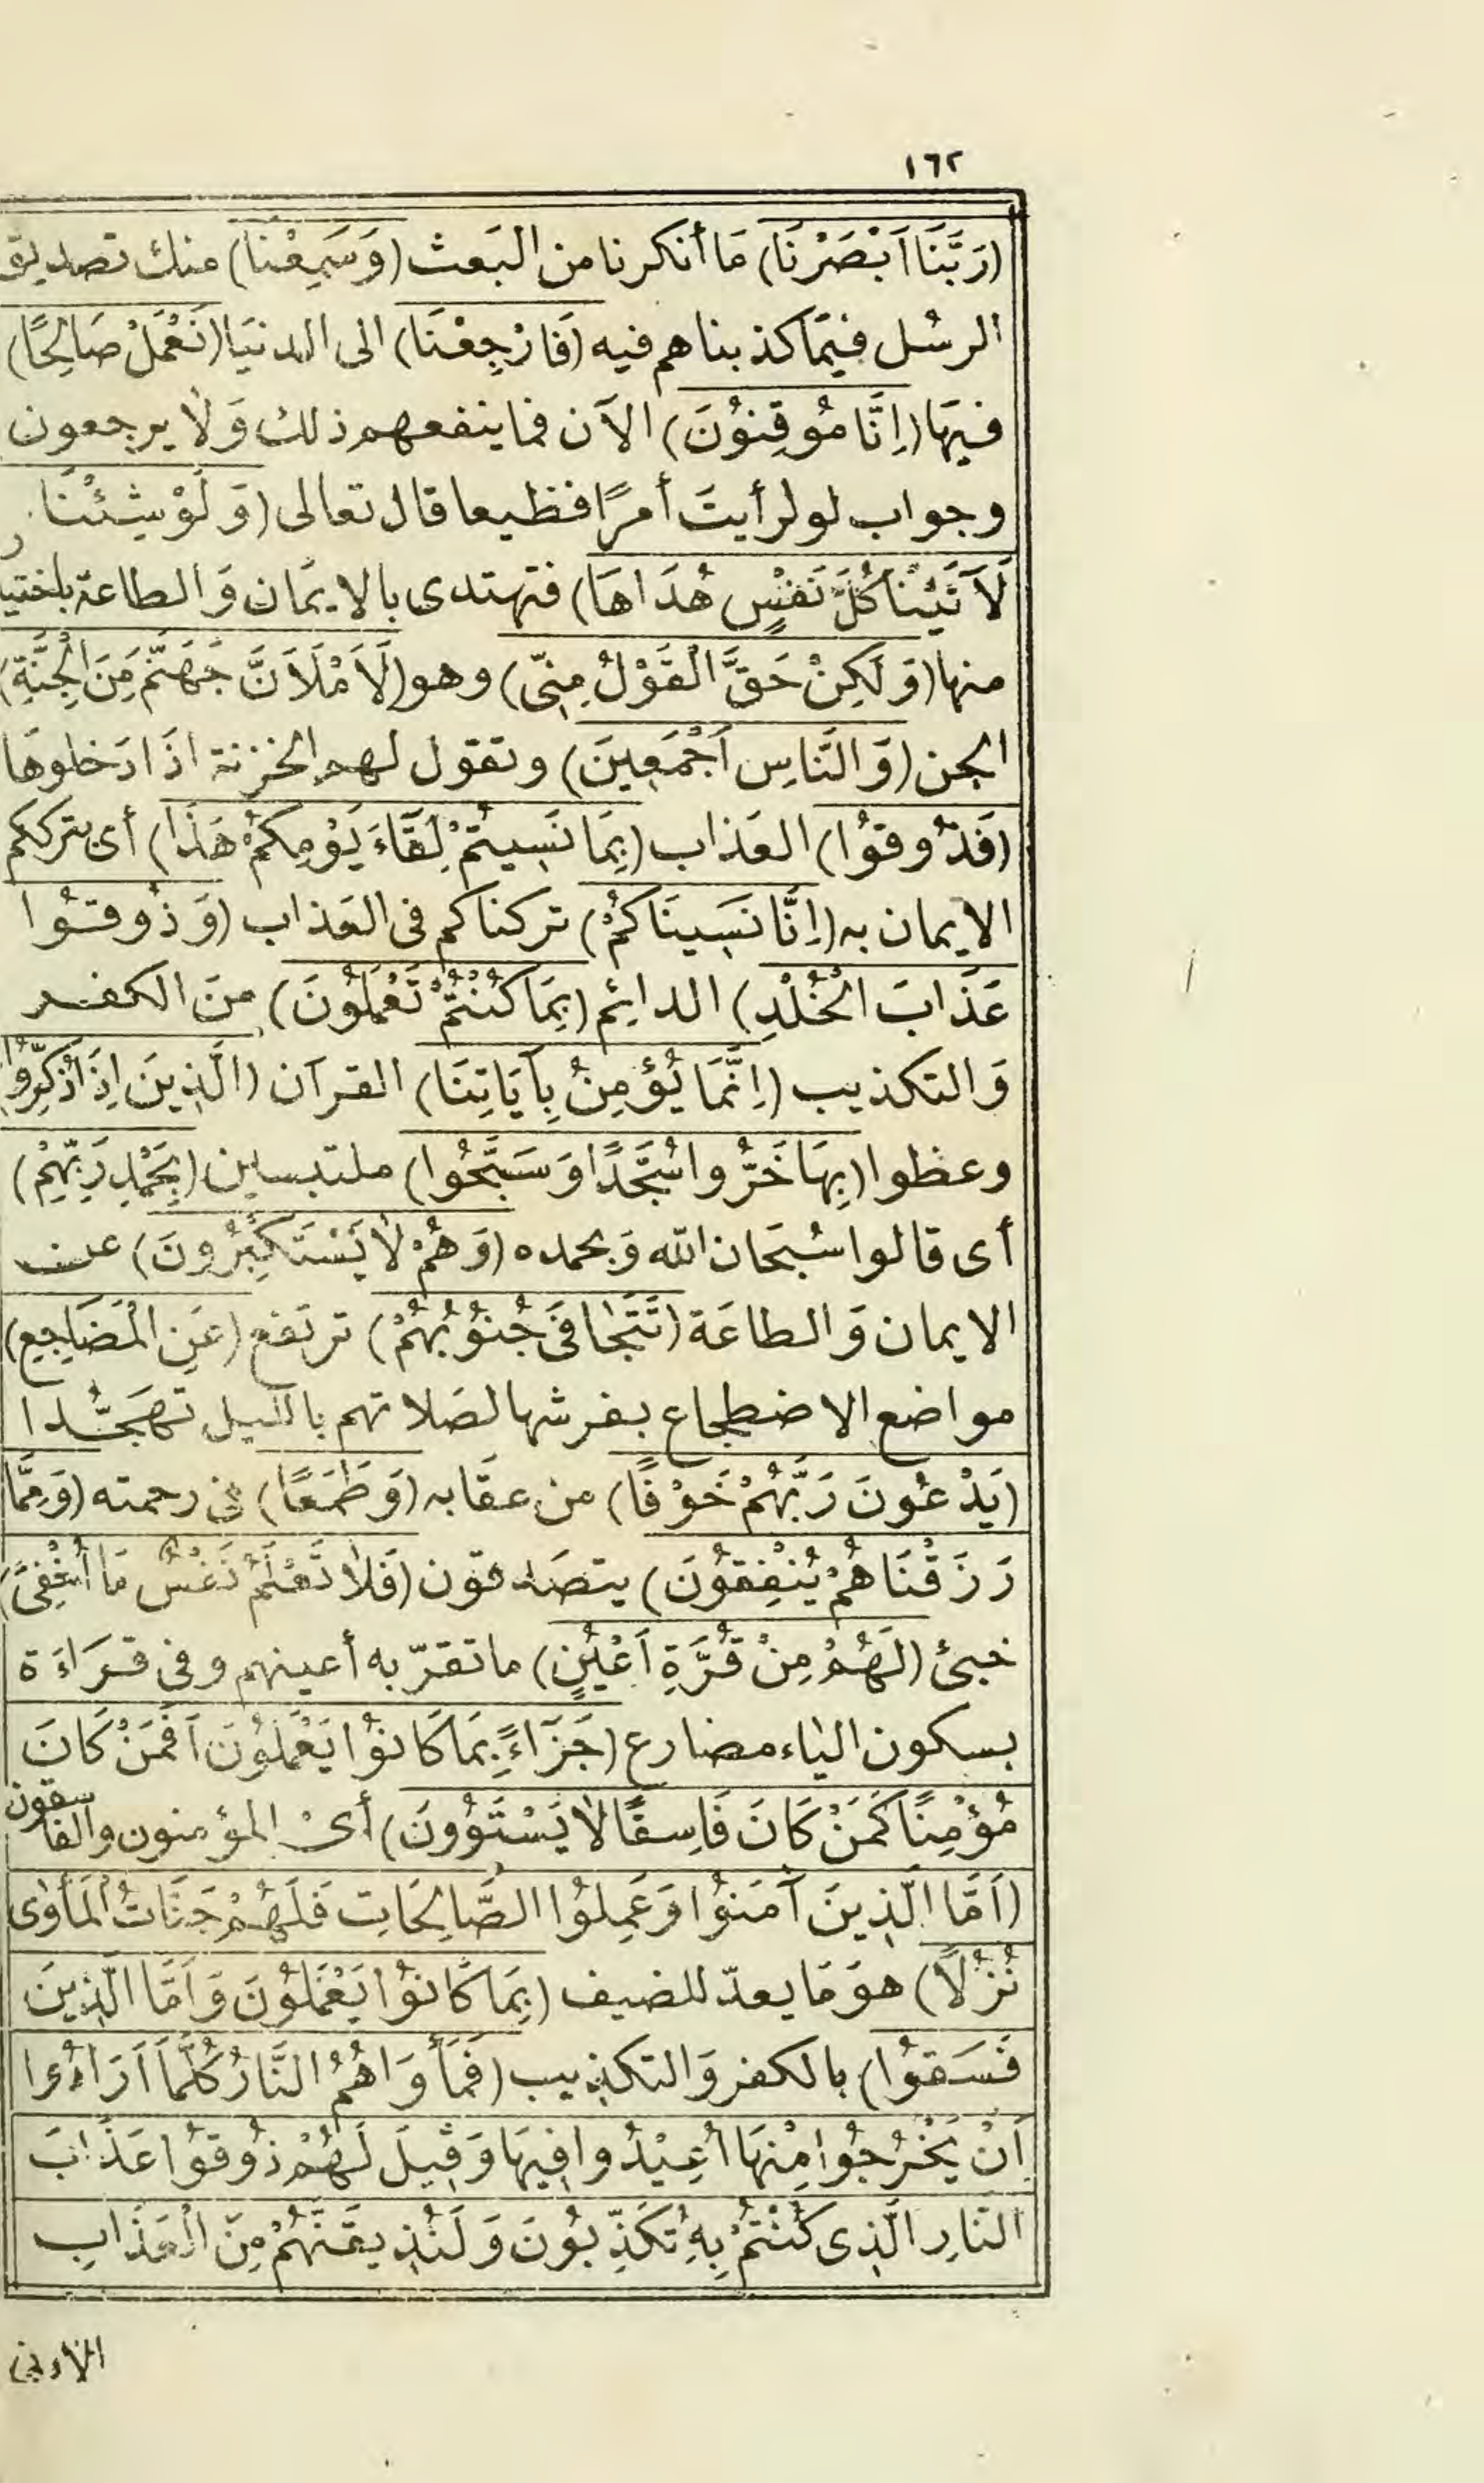 ١٦٢
(رَبَّنَا اَبْصَرْنَا) مَا أنكرنا من البَعث (وَسَمِعْنَا) منك تصديق
الرسُل فيمَا كذبناهم فيه (فَارْجِعْنَا) الى الدنيَا (نَعْمَلْ صَالِحًا)
فيهَا (اِنَّا مُوقِنُونَ) الآن فما ينفعهم ذلك وَلَا يرجعون
وجواب لو لرأيتَ أمرًا فظيعا قال تعالى (وَلَوْ شِئْنَا
لَآتَيْنَا كُلَّ نَفْسٍ هُدَاهَا) فتهتدى بالايمَان وَالطاعة باختيار
منها (وَلَكِنْ حَقَّ الْقَوْلُ مِنِّى) وهو (لَاَمْلَاَنَّ جَهَنَّمَ مِنَ الْجِنَّةِ)
الجن (وَالنَّاسِ اَجْمَعِينَ) وتقول لهم الخزنة اذَا دَخلوهَا
(فَذُوقُوا) العَذاب (بِمَا نَسِيتُمْ لِقَاءَ يَوْمِكُمْ هَذَا) أى بترككم
الايمان به (اِنَّا نَسِينَاكُمْ) تركناكم فى العَذاب (وَذُوقُوا
عَذَابَ الْخُلْدِ) الدائِم (بِمَا كُنْتُمْ تَعْمَلُونَ) منَ الكفر
وَالتكذيب (اِنَّمَا يُؤمِنُ بِآيَاتِنَا) القرآن (الَّذِينَ اِذَا ذُكِّرُوا)
وعظوا (بِهَا خَرُّوا سُجَّدًا وَسَبَّحُوا) ملتبسين (بِحَمْدِ رَبِّهِمْ)
أى قالوا سُبحَان الله وَبحمده (وَهُمْ لَا يَسْتَكْبِرُونَ) عن
الايمان وَالطاعَة (تَتَجَافَى جُنُوبُهُمْ) ترتفع (عَنِ الْمَضَاجِعِ)
مواضع الاضطجاع بفرشها لصَلاتهم بالليل تهَجُّدا
(يَدْعُونَ رَبَّهُمْ خَوْفًا) من عقَابه (وَطَمَعًا) فى رحمته (وَمِمَّا
رَزَقْنَاهُمْ يُنْفِقُونَ) يتصَدقون (فَلَا تَعْلَمُ نَفْسٌ مَا اُخْفِىَ)
خبئ (لَهُمْ مِنْ قُرَّةِ اَعْيُنٍ) ما تقرّ به أعينهم وفى قرَاءَة
بسكون اليَاء مضارع (جَزَاءً بِمَا كَانُوا يَعْمَلُونَ اَفَمَنْ كَانَ
مُؤْمِنًا كَمَنْ كَانَ فَاسِقًا لَا يَسْتَوُونَ) أىْ المؤمنون والفاسقون
(اَمَّا الَّذِينَ آمَنُوا وَعَمِلُوا الصَّالِحَاتِ فَلَهُمْ جَنَّاتُ الْمَأْوَى
نُزُلًا) هوَ مَا يعدّ للضيف (بِمَا كَانُوا يَعْمَلُونَ وَاَمَّا الَّذِينَ
فَسَقُوا) بالكفر وَالتكذيب (فَمَأْوَاهُمُ النَّارُ كُلَّمَا اَرَادُوا
اَنْ يَخْرُجُوا مِنْهَا اُعِيْدُوا فِيهَا وَقِيلَ لَهُمْ ذُوقُوا عَذَابَ
النَّارِ الَّذِى كُنْتُمْ بِهِ تُكَذِّبُونَ وَلَنُذِيقَنَّهُمْ مِنَ الْعَذَابِ
الأدنى